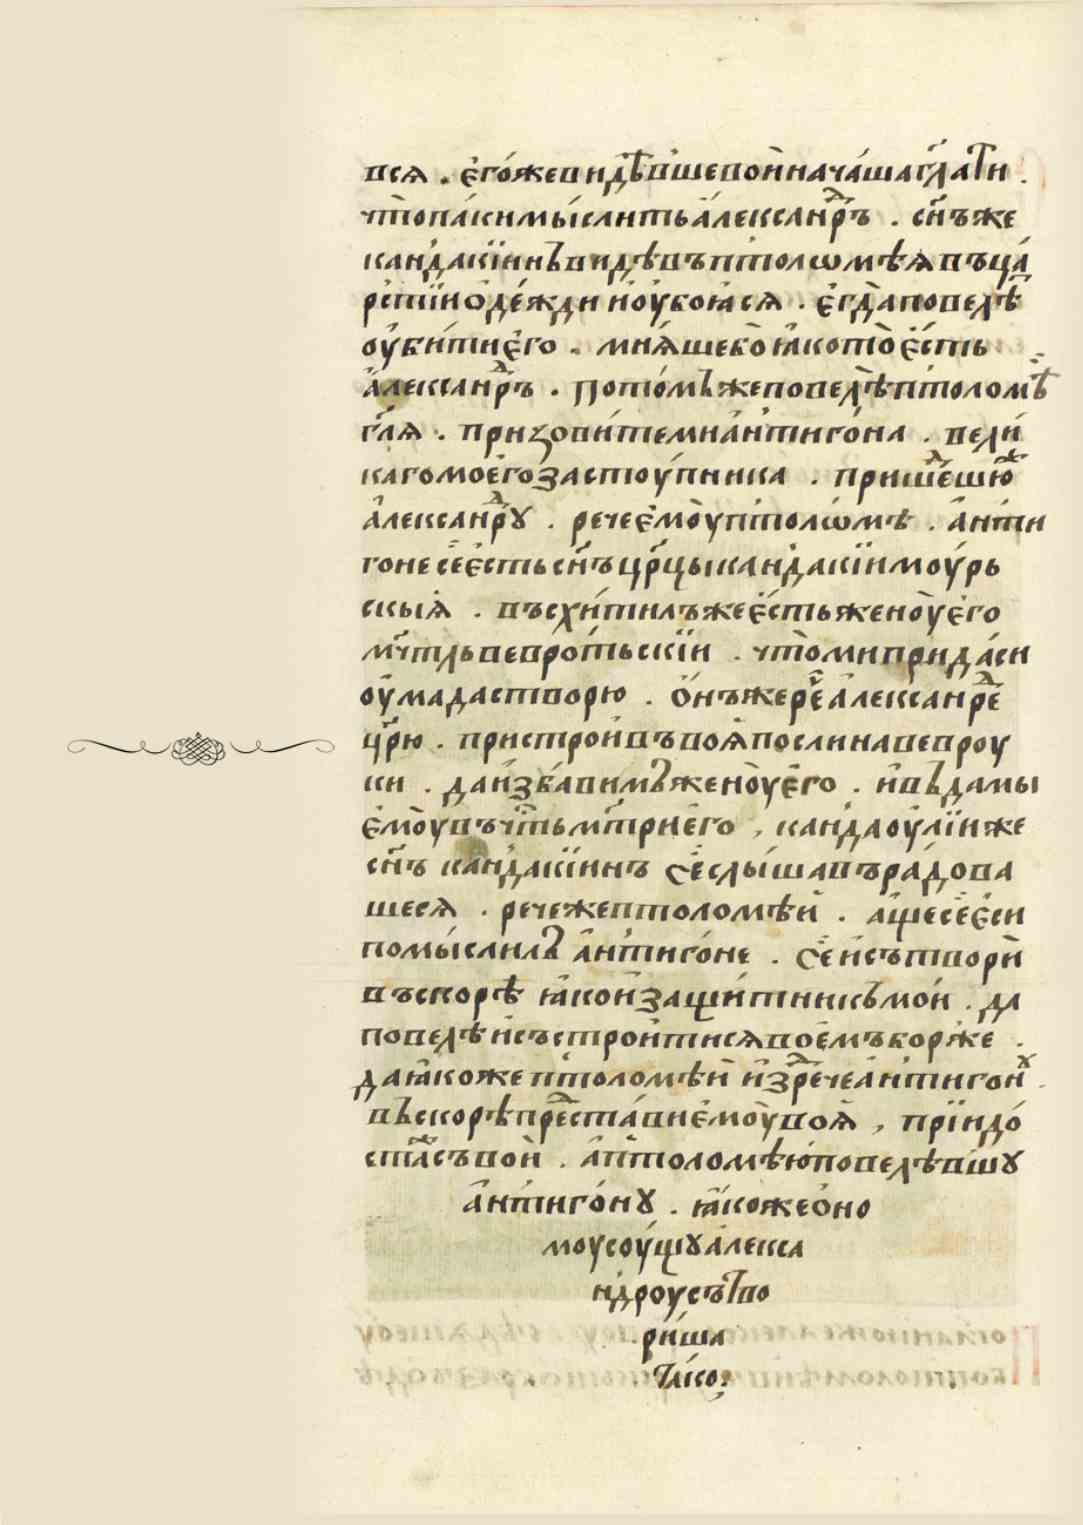 вся . єго́жевидѣ́вшевоѝнача́шагл҃ати .
чт̀опа́кимы́слитьа́леѯандръ . сн҃ъже
канда́кїинъвидѣ́въптоломѣ́явъца́
рстїиѻде́ждиио̀убоя́ся . є҆гд̀аповелѣ́
оу҆би́тиє҆го . мня́шебо̀я҆кото̀є҆́сть
а҆лександръ . пото́мъжеповелѣ̀птоломѣ́
гл҃я . призови́темиа҆нтиго́на . вели́
кагомоего̀засто́упника . прише́дшюж
а҆лександру . речеємо̀уптолѡ́мѣ . а҆нти
гонесеє҆́стьсн҃ъцр҃цыканда́кїимоу́рь
скыя̀ . въсхи́тилъжеє҆́стьжено̀уєго
мч҃тльвевро́тьскїи . чт̀омиприда́си
оу҆мадастворю . ѻ҆́нъжерече́а҆лександре
цр҃ю . пристрои́въвоя̀послинавевроу
ки . даи҆зба́вимъжено̀уєго . и҆въдамы
є҆мо̀увъчⷭ҇тьмт҃риєго , кандао́улїиже
сн҃ъ канда́кїинъ се́слы́шавъра́дова
шеся . речежептоломѣ́й . а҆щесеє҆си
помы́слилъ а҆нтиго́не . се́и҆сътворѝ
въскорѣ̀ я҆кой̀защи́тникъмо́й . да
повелѣ̀и҆състрои́тисявоє҆мъборже .
дая҆кожептоломѣ́й и҆зречеа҆нтигону
въскорѣ̀преста́виємо̀увоя̀ , прїидо́
ста́съвоѝ . а҆птоломѣ́юповелѣ́вшу
а҆нтиго́ну . я҆́кожеѻ҆но
моусо́ущуа҆лекса
ндроусътво
ри́ша
та́ко: